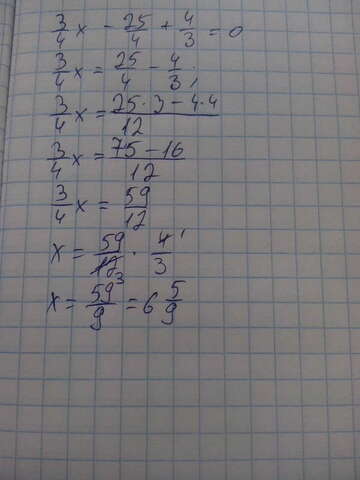 3/4 x - 25/4 + 4/3 = 0
3/4 x = 25/4 - 4/3
3/4 x = 25·3-4·4/12
3/4 x = 75-16/12
3/4 x = 59/12
x = 59/12 3 · 4/3 1
x = 59/9 = 6 5/9